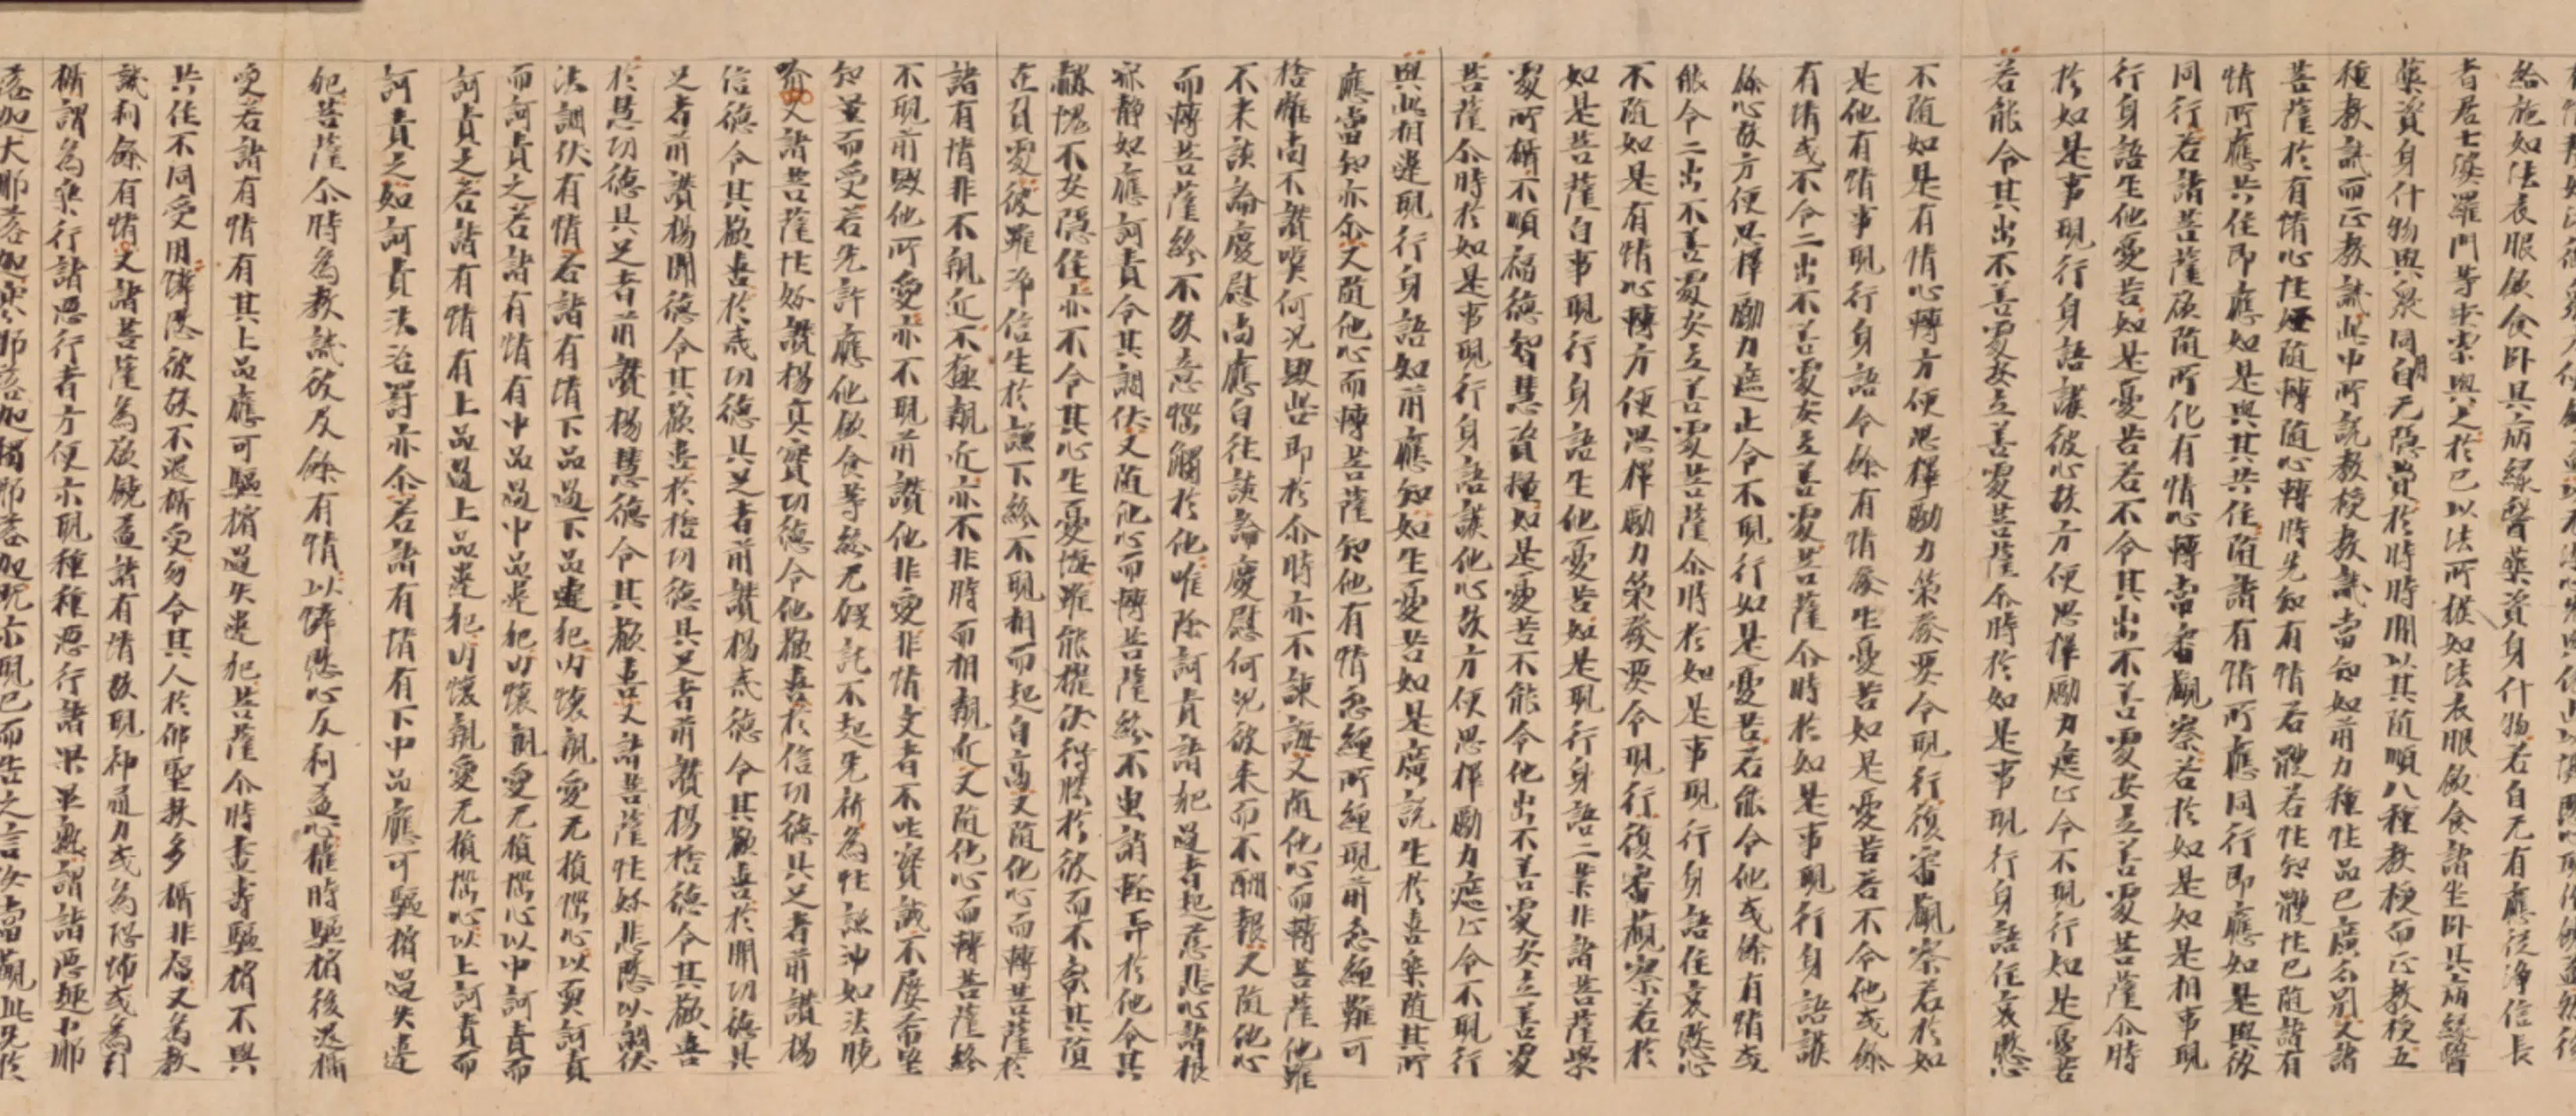 給施如法衣服飲食卧具病緣醫藥資身什物若自无有應從淨信長
者居士婆羅門等求索與之於己以法所獲如法衣服飲食諸坐卧具病緣醫
藥資身什物與衆同用自无隱費於時時間以其隨順八種教授而正教授五
種教誡而正教誡此中所說教授教誡當知如前力種性品已廣分別又諸
菩薩於有情心性好隨轉隨心轉時先知有情若體若性知體性已隨諸有
情所應共住即應如是與其共住隨諸有情所應同行即應如是與彼
同行若諸菩薩欲隨所化有情心轉當審觀察若於如是如是相事現
行身語生他憂苦如是憂苦若不令其出不善處安立善處菩薩尒時
於如是事現行身語護彼心故方便思擇勵力遮止令不現行如是憂苦
若能令其出不善處安立善處菩薩尒時於如是事現行身語住哀愍
不隨如是有情心轉方便思擇勵力策發要令現行復審觀察若於如
是他有情事現行身語令餘有情發生憂苦如是憂苦若不令他或餘
有情或不令二出不善處安立善處菩薩尒時於如是事現行身語護
餘心故方便思擇勵力遮止令不現行如是憂苦若能令他或餘有情或
能令二出不善處安立善處菩薩尒時於如是事現行身語住哀愍心
不隨如是有情心轉方便思擇勵力策發要令現行復審觀察若於
如是菩薩自事現行身語生他憂苦如是現行身語二業非諸菩薩學
處所攝不順福德智慧資糧如是憂苦不能令他出不善處安立善處
菩薩尒時於如是事現行身語護他心故方便思擇勵力遮止令不現行
與此相違現行身語如前應知如生憂苦如是廣說生於喜樂隨其所
應當知亦尒又隨他心而轉菩薩知他有情忿纏所纏現前忿纏難可
捨離尚不讚嘆何況毀呰即於尒時亦不諫誨又隨他心而轉菩薩他雖
不來談論慶慰尚應自往談論慶慰何況彼來而不酬報又隨他心
而轉菩薩終不故意惱觸於他唯除訶責諸犯過者起慈悲心諸根
寂靜如應訶責令其調伏又隨他心而轉菩薩終不嗤誚輕弄於他令其
赧愧不安隱住亦不令其心生憂悔雖能摧伏得勝於彼而不彰其墮
在負處彼雖淨信生於謙下終不現相而起自高又隨他心而轉菩薩於
諸有情非不親近不極親近亦不非時而相親近又隨他心而轉菩薩終
不現前毀他所愛亦不現前讚他非愛非情交者不吐實誠不屢希望
知量而受若先許應他飲食等終无假託不赴先祈為性謙沖如法曉
喻又諸菩薩性好讚揚真實功德令他歡喜於信功德具足者前讚揚
信德令其歡喜於戒功德具足者前讚揚戒德令其歡喜於聞功德具
足者前讚揚聞德令其歡喜於捨功德具足者前讚揚捨德令其歡喜
於慧功德具足者前讚揚慧德令其歡喜又諸菩薩性好悲愍以調伏
法調伏有情若諸有情下品過下品違犯內懷親愛无損惱心以耎訶責
而訶責之若諸有情有中品過中品違犯內懷親愛无損惱心以中訶責而
訶責之若諸有情有上品過上品違犯內懷親愛无損惱心以上訶責而
訶責之如訶責法治罰亦尒若諸有情有下中品應可驅擯過失違
犯菩薩尒時為教誡彼及餘有情以憐愍心及利益心權時驅擯後還攝
受若諸有情有其上品應可驅擯過失違犯菩薩尒時盡壽驅擯不與
共住不同受用憐愍彼故不還攝受勿令其人於佛聖教多攝非福又為教
誡利餘有情又諸菩薩為欲饒益諸有情故現神通力或為恐怖或為引
攝謂為樂行諸惡行者方便示現種種惡行諸果異熟謂諸惡趣小那
落迦大那落迦寒那落迦獨那落迦既示現已而告之言汝當觀此先於